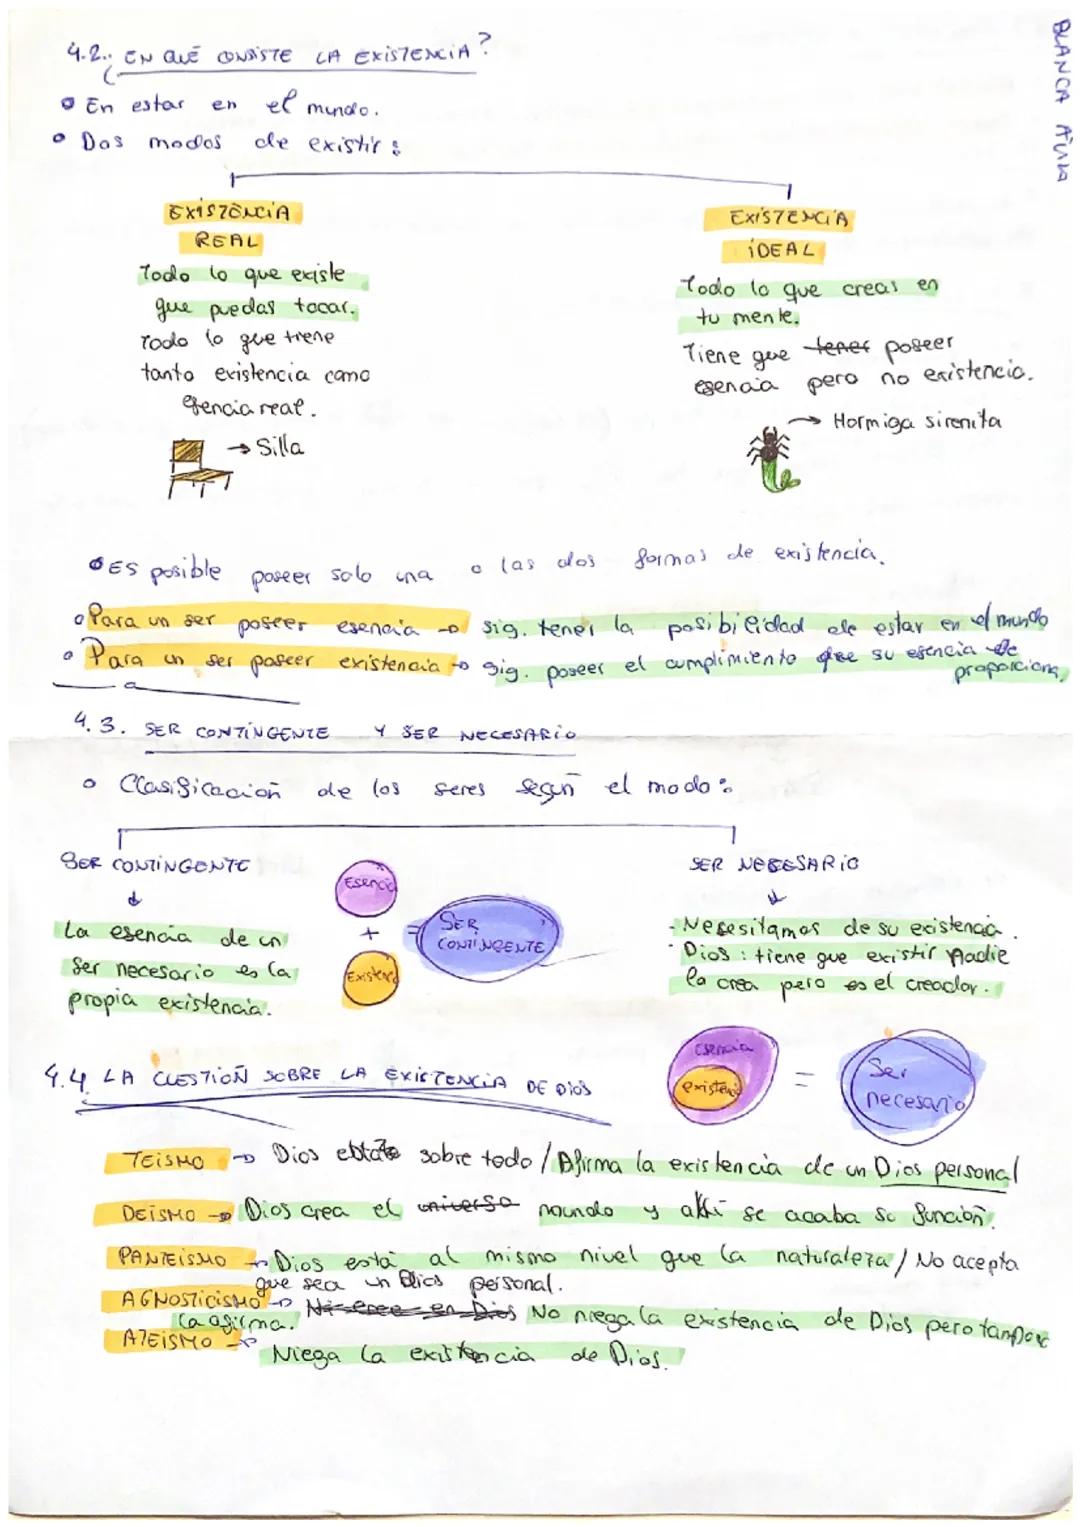 BLANCA
4.2. ¿EN QUÉ CONSISTE LA EXISTENCIA?
En estar en el mundo.
Dos modos de existir:
EXISTENCIA
REAL
Todo lo que existe
que puedas tocar.
Todo lo que tiene
tanto existencia como
esencia real.
→ Silla
EXISTENCIA
IDEAL
Todo lo que creas en
tu mente.
Tiene que tener poseer
esencia pero no existencia.
→ Hormiga sirenita
Es posible poseer solo una o las dos formas de existencia.
Para un ser poseer esencia → sig. tener la posibilidad de estar en el mundo
Para un ser poseer existencia → sig. poseer el cumplimiento que su esencia de
proporciona.
4.3. SER CONTINGENTE Y SER NECESARIO
Clasificación de los seres según el modo:
SER CONTINGENTE
La esencia de un
ser necesario es la
propia existencia.
Esencia
+
Existencia
=
SER
CONTINGENTE
SER NECESARIO
- Necesitamos de su existencia.
· Dios: tiene que existir Nadie
lo crea pero es el creador.
Esencia
existencia
=
Ser
necesario
4.4 LA CUESTIÓN SOBRE LA EXISTENCIA DE DIOS
TEÍSMO → Dios sobre todo / Afirma la existencia de un Dios personal
DEÍSMO → Dios crea el universo mundo y ahí se acaba su función.
PANTEISMO → Dios está al mismo nivel que la naturaleza / No acepta
que sea un Dios personal.
AGNOSTICISMO → Ni cree en Dios No niega la existencia de Dios pero tampoco
la afirma.
ATEISMO → Niega la existencia de Dios.